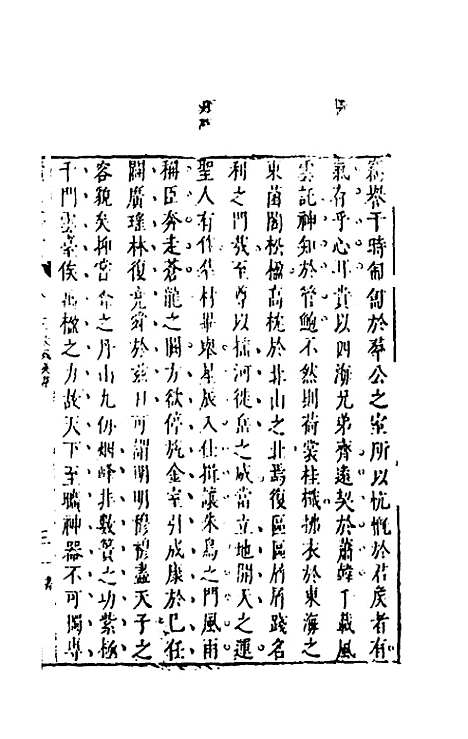 窮譽于時匍匐於羣公之室所以忼慨於君矣者有
氣存乎心耳貴以四海兄弟齊遠契於蕭韓千載風
雲託神知於管鮑不然則荷裳桂檝拂衣於東海之
東菌閣松楹高枕於北山之北焉復區區屑屑踐名
利之門哉至尊以搖河徙岳之威當立地開天之運
聖人有作羣材畢舉星辰入仕揖讓朱鳥之門風雨
稱臣奔走蒼龍之闕方欲停旄金室引成康於已任
闢廣瑤林復堯舜於茲日可謂明明穆穆盡天子之
容貌矣抑嘗命之丹山九仞烟峰非數蕢之功紫極
千門雲臺俟萬楹之力故天下至曠神器不可獨專